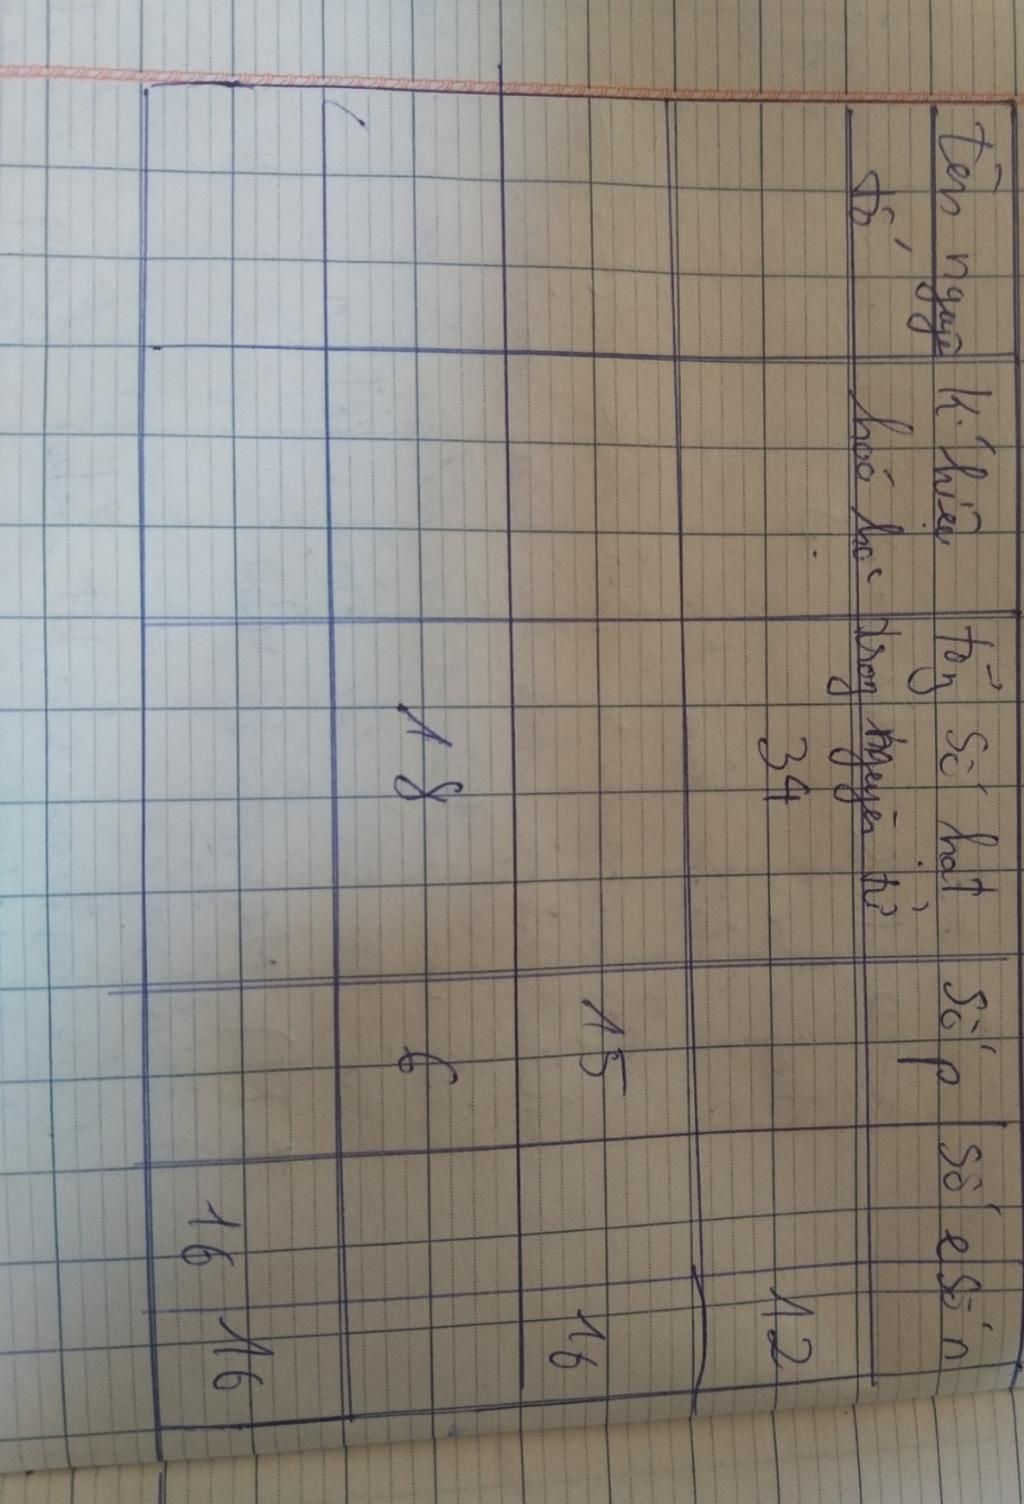 Tên nguyên tố | Kí hiệu hoá học | Tổng số hạt trong nguyên tử | Số p | Số e | Số n
34 | 12
15 | 16
18 | 6
16 | 16